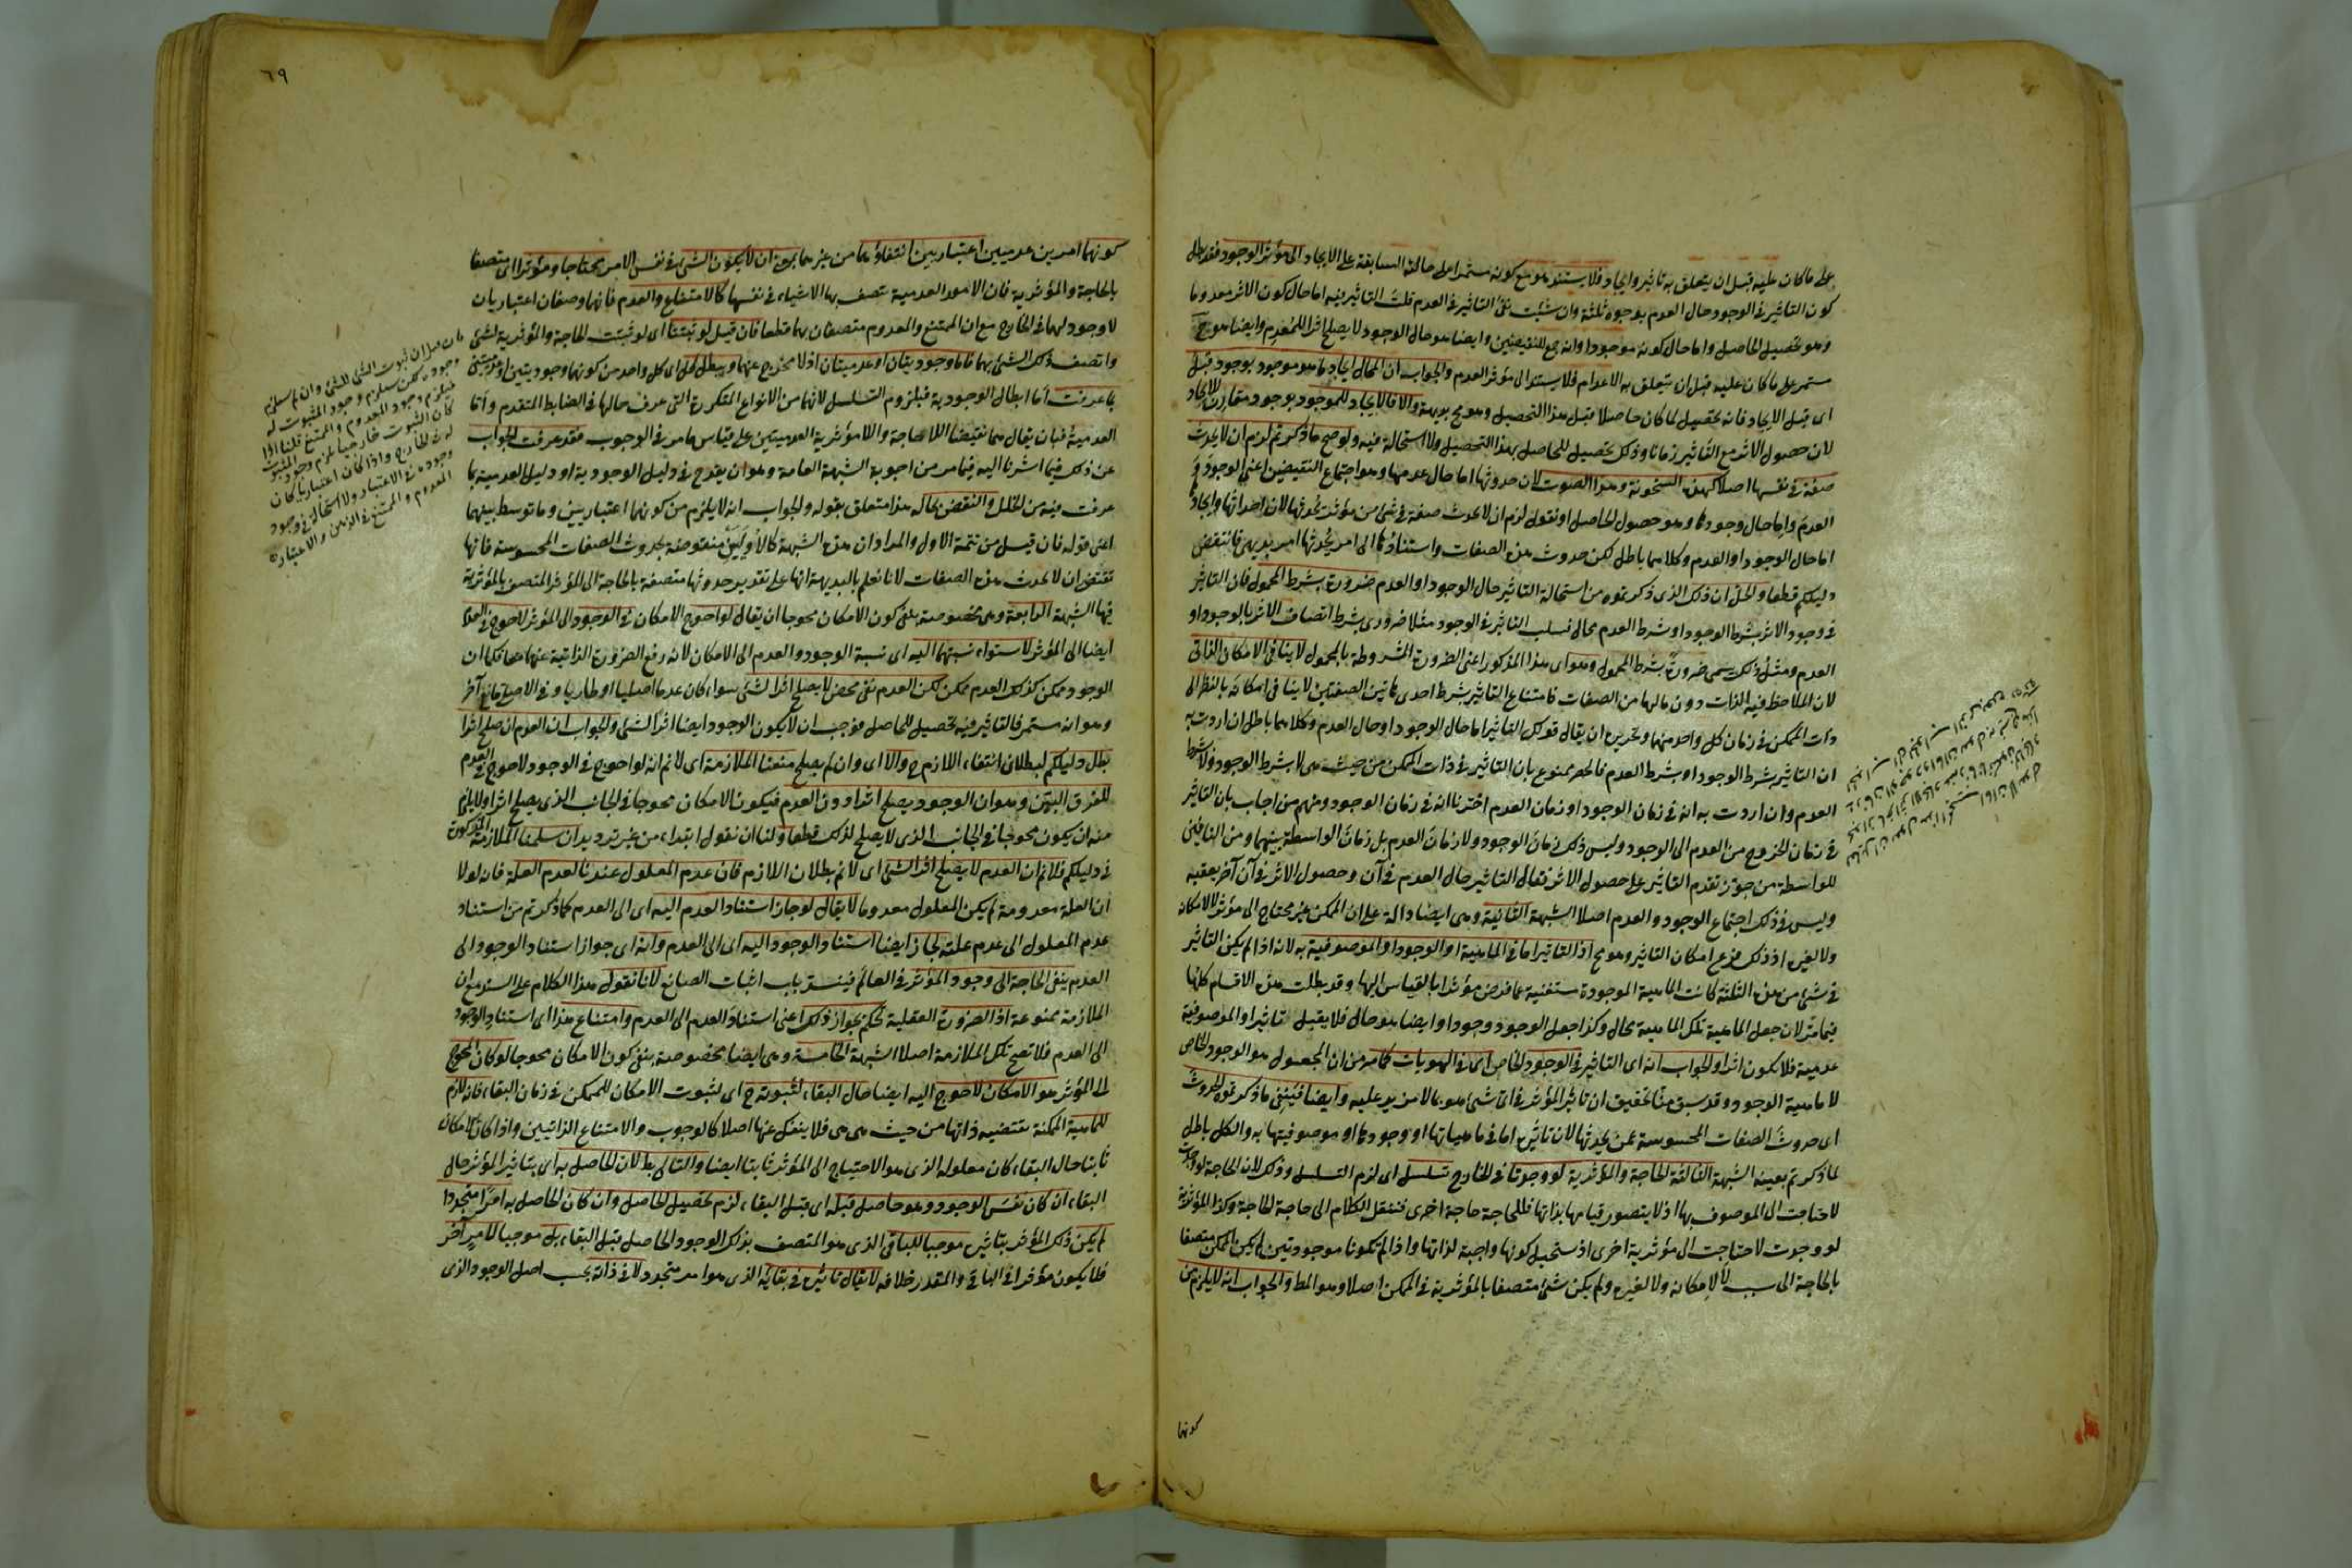 على ما كان عليه قبل ان يتعلق به تاثير وايجاد فلا يستند هو مع كونه مستمرا على حالته السابقة على الايجاد الى مؤثر الوجود فقد بطل
كون التاثير في الوجود حال العدم بوجوه ثلثة وان شئت نفى التاثير في العدم قلت التاثير فيه اما حال كون الاثر معدوما
وهو تحصيل الحاصل واما حال كونه موجودا وانه جمع للنقيضين وايضا هو حال الوجود لا يصلح اثرا للمعدم وايضا هو ح
مستمر على ما كان عليه قبل ان يتعلق به الاعدام فلا يستند الى مؤثر العدم والجواب ان المحال ايجاد ما هو موجود بوجود قبل
اى قبل الايجاد فانه تحصيل لما كان حاصلا قبل هذا التحصيل وهو مح بديهة والا فالايجاد للموجود بوجود مقارن للايجاد
لان حصول الاثر مع التاثير زمانا وذلك تحصيل للحاصل بهذا التحصيل ولا استحالة فيه ولو صح ما ذكرتم لزم ان لا يحدث
صفة في نفسها اصلا كهذه السخونة وهذا الصوت لان حدوثها اما حال عدمها وهو اجتماع النقيضين اعنى الوجود و
العدم واما حال وجودها وهو حصول الحاصل او نقول لزم ان لا يحدث صفة في شئ من مؤثر يحدثها لان احداثها وايجاد
اما حال الوجود او العدم وكلاهما باطل لكن حدوث هذه الصفات واستنادها الى امر يحدثها امر بديهى فانتقض
دليلكم قطعا والحل ان ذلك الذى ذكرتموه من استحالة التاثير حال الوجود او العدم ضرورة بشرط المحمول فان التاثير
في وجود الاثر بشرط الوجود او بشرط العدم محال فسلب التاثير في الوجود مثلا ضرورى بشرط اتصاف الاثر بالوجود او
العدم ومثل ذلك يسمى ضرورة بشرط المحمول وهو اى هذا المذكور اعنى الضرورة المشروطة بالمحمول لا ينافى الامكان الذاتى
لان الملاحظ فيه الذات دون مالها من الصفات فامتناع التاثير بشرط احدى هاتين الصفتين لا ينافى امكانه بالنظر الى
ذات الممكن في زمان كل واحد منهما وتحريره ان يقال قولك التاثير اما حال الوجود او حال العدم وكلاهما باطل ان اردت به
ان التاثير بشرط الوجود او بشرط العدم فالحصر ممنوع بان التاثير في ذات الممكن من حيث هى لا بشرط الوجود ولا بشرط
العدم وان اردت به انه في زمان الوجود او زمان العدم اخترنا انه في زمان الوجود ومنهم من اجاب بان التاثير
في زمان الخروج من العدم الى الوجود وليس ذلك في زمان الوجود ولا زمان العدم بل زمان الواسطة بينهما ومن النافين
للواسطة من جوز تقدم التاثير على حصول الاثر فقال التاثير حال العدم في آن وحصول الاثر في آن آخر يعقبه
وليس في ذلك اجتماع الوجود والعدم اصلا الشبهة الثانية وهى ايضا دالة على ان الممكن غير محتاج الى مؤثر لا لامكانه
ولا لغيره اذ ذلك فرع امكان التاثير وهو مح اذ التاثير اما في الماهية او الوجود او الموصوفية به لانه اذا لم يكن التاثير
في شئ من هذه الثلثة كانت الماهية الموجودة مستغنية عما فرض مؤثرا بالقياس اليها وقد بطلت هذه الاقسام كلها
فيما مر لان جعل الماهية تلك الماهية محال وكذا جعل الوجود وجودا وايضا هو حال فلا يقبل تاثيرا والموصوفية
عدمية فلا يكون اثرا والجواب انه اى التاثير في الوجود الخاص اى في الهويات كما مر من ان المجعول هو الوجود الخاص
لا ماهية الوجود وقد سبق منا تحقيق ان تاثير المؤثر في اى شئ هو بما لا مزيد عليه وايضا فينفى ما ذكرتموه الحدوث
اى حدوث الصفات المحسوسة عمن يحدثها لان تاثيره اما في ماهياتها او وجودها او موصوفيتها به والكل باطل
لما ذكرتم بعينه الشبهة الثالثة الحاجة والمؤثرية لو وجدتا في الخارج تسلسل اى لزم التسلسل وذلك لان الحاجة لو وجدت
لاحتاجت الى الموصوف بها اذ لا يتصور قيامها بذاتها فللحاجة حاجة اخرى فننقل الكلام الى حاجة الحاجة وكذا المؤثرية
لو وجدت لاحتاجت الى مؤثرية اخرى اذ يستحيل كونها واجبة لذاتها واذا لم يكونا موجودتين لم يكن الممكن متصفا
بالحاجة الى سبب لا لامكانه ولا لغيره ولم يكن شئ متصفا بالمؤثرية في الممكن اصلا وهو المط والجواب انه لا يلزم من
كونها
٦٩
كونهما امرين عدميين اعتباريين انتفاؤهما من غيرهما بمعنى ان لا يكون الشئ في نفس الامر محتاجا ومؤثرا اى متصفا
بالحاجة والمؤثرية فان الامور العدمية تتصف بها الاشياء في نفسها كالامتناع والعدم فانهما وصفان اعتباريان
لا وجود لهما في الخارج مع ان الممتنع والمعدوم متصفان بهما قطعا فان قيل لو ثبتتا اى لو ثبتت الحاجة والمؤثرية لشئ
واتصف ذلك الشئ بهما فاما وجوديتان او عدميتان اذ لا مخرج عنهما ويبطل كل اى كل واحد من كونهما وجوديتين او عدميتين
بما عرفت اما ابطال الوجودية فبلزوم التسلسل لانهما من الانواع المتكررة التى عرف حالها في الضابط المتقدم واما
العدمية فبان يقال هما نقيضا اللاحاجة واللامؤثرية العدميتين على قياس ما مر في الوجوب فقد عرفت الجواب
عن ذلك فيما اشرنا اليه فيما مر من اجوبة الشبهة العامة وهو ان يقدح في دليل الوجودية او دليل العدمية بما
عرفت فيه من الخلل والنقض بحاله هذا متعلق بقوله والجواب انه لا يلزم من كونهما اعتباريين وما توسط بينهما
اعنى قوله فان قيل من تتمة الاول والمراد ان هذه الشبهة كالاوليين منقوضة بحدوث الصفات المحسوسة فانها
تقتضى ان لا يحدث هذه الصفات لانا نعلم بالبديهة انها على تقدير حدوثها متصفة بالحاجة الى المؤثر المتصف بالمؤثرية
فيها الشبهة الرابعة وهى مخصوصة بنفى كون الامكان محوجا ان يقال لو احوج الامكان في الوجود الى المؤثر لاحوج في العدم
ايضا الى المؤثر لاستواء نسبتهما اليه اى نسبة الوجود والعدم الى الامكان لانه رفع الضرورة الذاتية عنهما معا فكما ان
الوجود ممكن كذلك العدم ممكن لكن العدم نفى محض لا يصلح اثرا لشئ سواء كان عدما اصليا او طاريا وفي الاصلى مانع آخر
وهو انه مستمر فالتاثير فيه تحصيل للحاصل فوجب ان لا يكون الوجود ايضا اثرا لشئ والجواب ان العدم ان صلح اثرا
بطل دليلكم لبطلان انتفاء اللازم ح والا اى وان لم يصلح منعنا الملازمة اى لا نم انه لو احوج في الوجود لاحوج في العدم
للفرق البين وهو ان الوجود يصلح اثرا دون العدم فيكون الامكان محوجا في الجانب الذى يصلح اثرا ولا يلزم
منه ان يكون محوجا في الجانب الذى لا يصلح لذلك قطعا ولنا ان نقول ابتداء من غير ترديد ان سلمنا الملازمة المذكورة
في دليلكم فلا نم ان العدم لا يصلح اثرا لشئ اى لا نم بطلان اللازم فان عدم المعلول عندنا لعدم العلة فانه لولا
ان العلة معدومة لم يكن المعلول معدوما لا يقال لو جاز استناد العدم اليه اى الى العدم كما ذكرتم من استناد
عدم المعلول الى عدم علته لجاز ايضا استناد الوجود اليه اى الى العدم وانه اى جواز استناد الوجود الى
العدم ينفى الحاجة الى وجود المؤثر في العالم فينسد باب اثبات الصانع لانا نقول هذا الكلام على السند مع ان
الملازمة ممنوعة اذ الضرورة العقلية تحكم بجواز ذلك اعنى استناد العدم الى العدم وامتناع هذا اى استناد الوجود
الى العدم فلا تصح تلك الملازمة اصلا الشبهة الخامسة وهى ايضا مخصوصة بنفى كون الامكان محوجا لو كان المحوج
الى المؤثر هو الامكان لاحوج اليه ايضا حال البقاء لثبوته ح اى لثبوت الامكان للممكن في زمان البقاء فانه لازم
للماهية الممكنة تقتضيه ذاتها من حيث هى هى فلا ينفك عنها اصلا كالوجوب والامتناع الذاتيين واذا كان الامكان
ثابتا حال البقاء كان معلوله الذى هو الاحتياج الى المؤثر ثابتا ايضا والتالى بط لان الحاصل به اى بتاثير المؤثر حال
البقاء ان كان نفس الوجود وهو حاصل قبله اى قبل البقاء لزم تحصيل الحاصل وان كان الحاصل به امرا متجددا
لم يكن ذلك المؤثر بتاثيره موجبا للباقى الذى هو المتصف بذلك الوجود الحاصل قبل البقاء بل موجبا لامر آخر
فلا يكون مؤثرا في الباقى والمقدر خلافه لا يقال تاثيره في بقائه الذى هو امر متجدد لا في ذاته بحسب اصل الوجود الذى
فان قيل ان ثبوت الشئ للشئ وان لم يستلزم
وجوده لكن يستلزم وجود المثبوت له
فيلزم وجود المعدوم والممتنع قلنا اذا
كان الثبوت خارجيا يلزم وجود المثبوت
له في الخارج واذا كان اعتباريا كان
وجوده في الاعتبار ولا استحالة في وجود
المعدوم والممتنع في الذهن والاعتبار